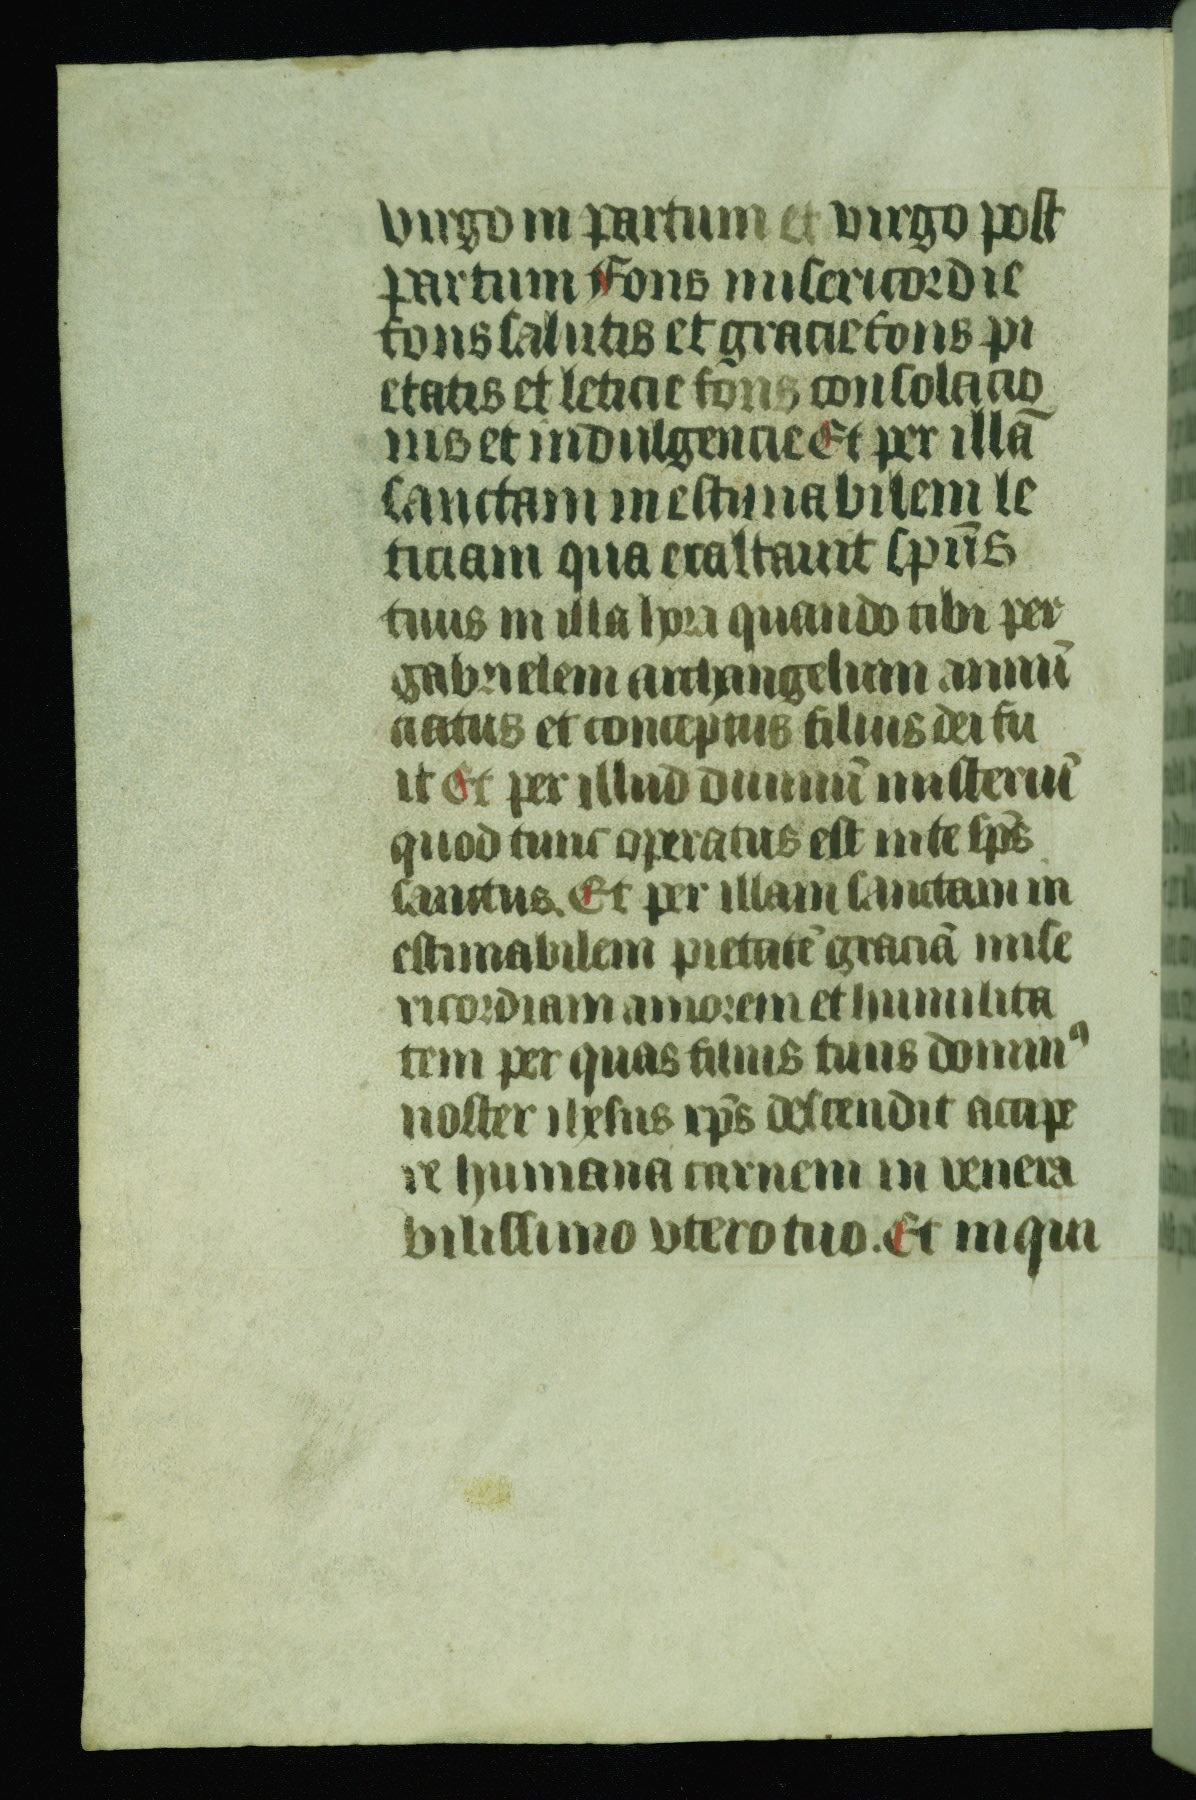 virgo in partum et virgo post
partum Fons misericordie
fons salutis et gracie fons pi
etatis et leticie fons consolacio
nis et indulgencie Et per illā
sanctam inestimabilem le
ticiam qua exaltauit spūs
tuus in illa hora quando tibi per
gabrielem archangelum annūū
ciatus et conceptus filius dei fu
it Et per illud diuinū misteriū
quod tunc operatus est in te sp̄s
sanctus. Et per illam sanctam in
estimabilem pietatē graciā mise
ricordiam amorem et humilita
tem per quas filius tuus dominꝰ
noster ihesus xp̄s descendit accipe
re humana carnem in venera
bilissimo vtero tuo. Et in qui